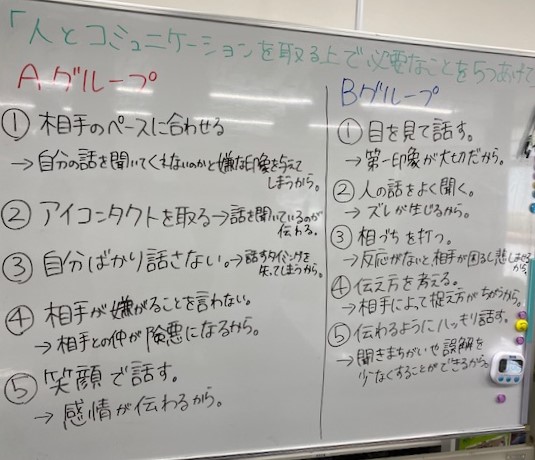 「人とコミュニケーションを取る上で必要なことを5つあげて
Aグループ
① 相手のペースに合わせる
→自分の話を聞いてくれないのかと嫌な印象を与えて
しまうから。
② アイコンタクトを取る→話を聞いているのが
伝わる。
③ 自分ばかり話さない。→話すタイミングを
失ってしまうから。
④ 相手が嫌がることを言わない。
→相手との仲が険悪になるから。
⑤ 笑顔で話す。
→感情が伝わるから。
Bグループ
① 目を見て話す。
→第一印象が大切だから。
② 人の話をよく聞く。
→ズレが生じるから。
③ 相づちを打つ。
→反応がないと相手が困るし悲しませる
から。
④ 伝え方を考える。
→相手によって捉え方がちがうから。
⑤ 伝わるようにハッキリ話す。
→聞きまちがいや誤解を
少なくすることができるから。